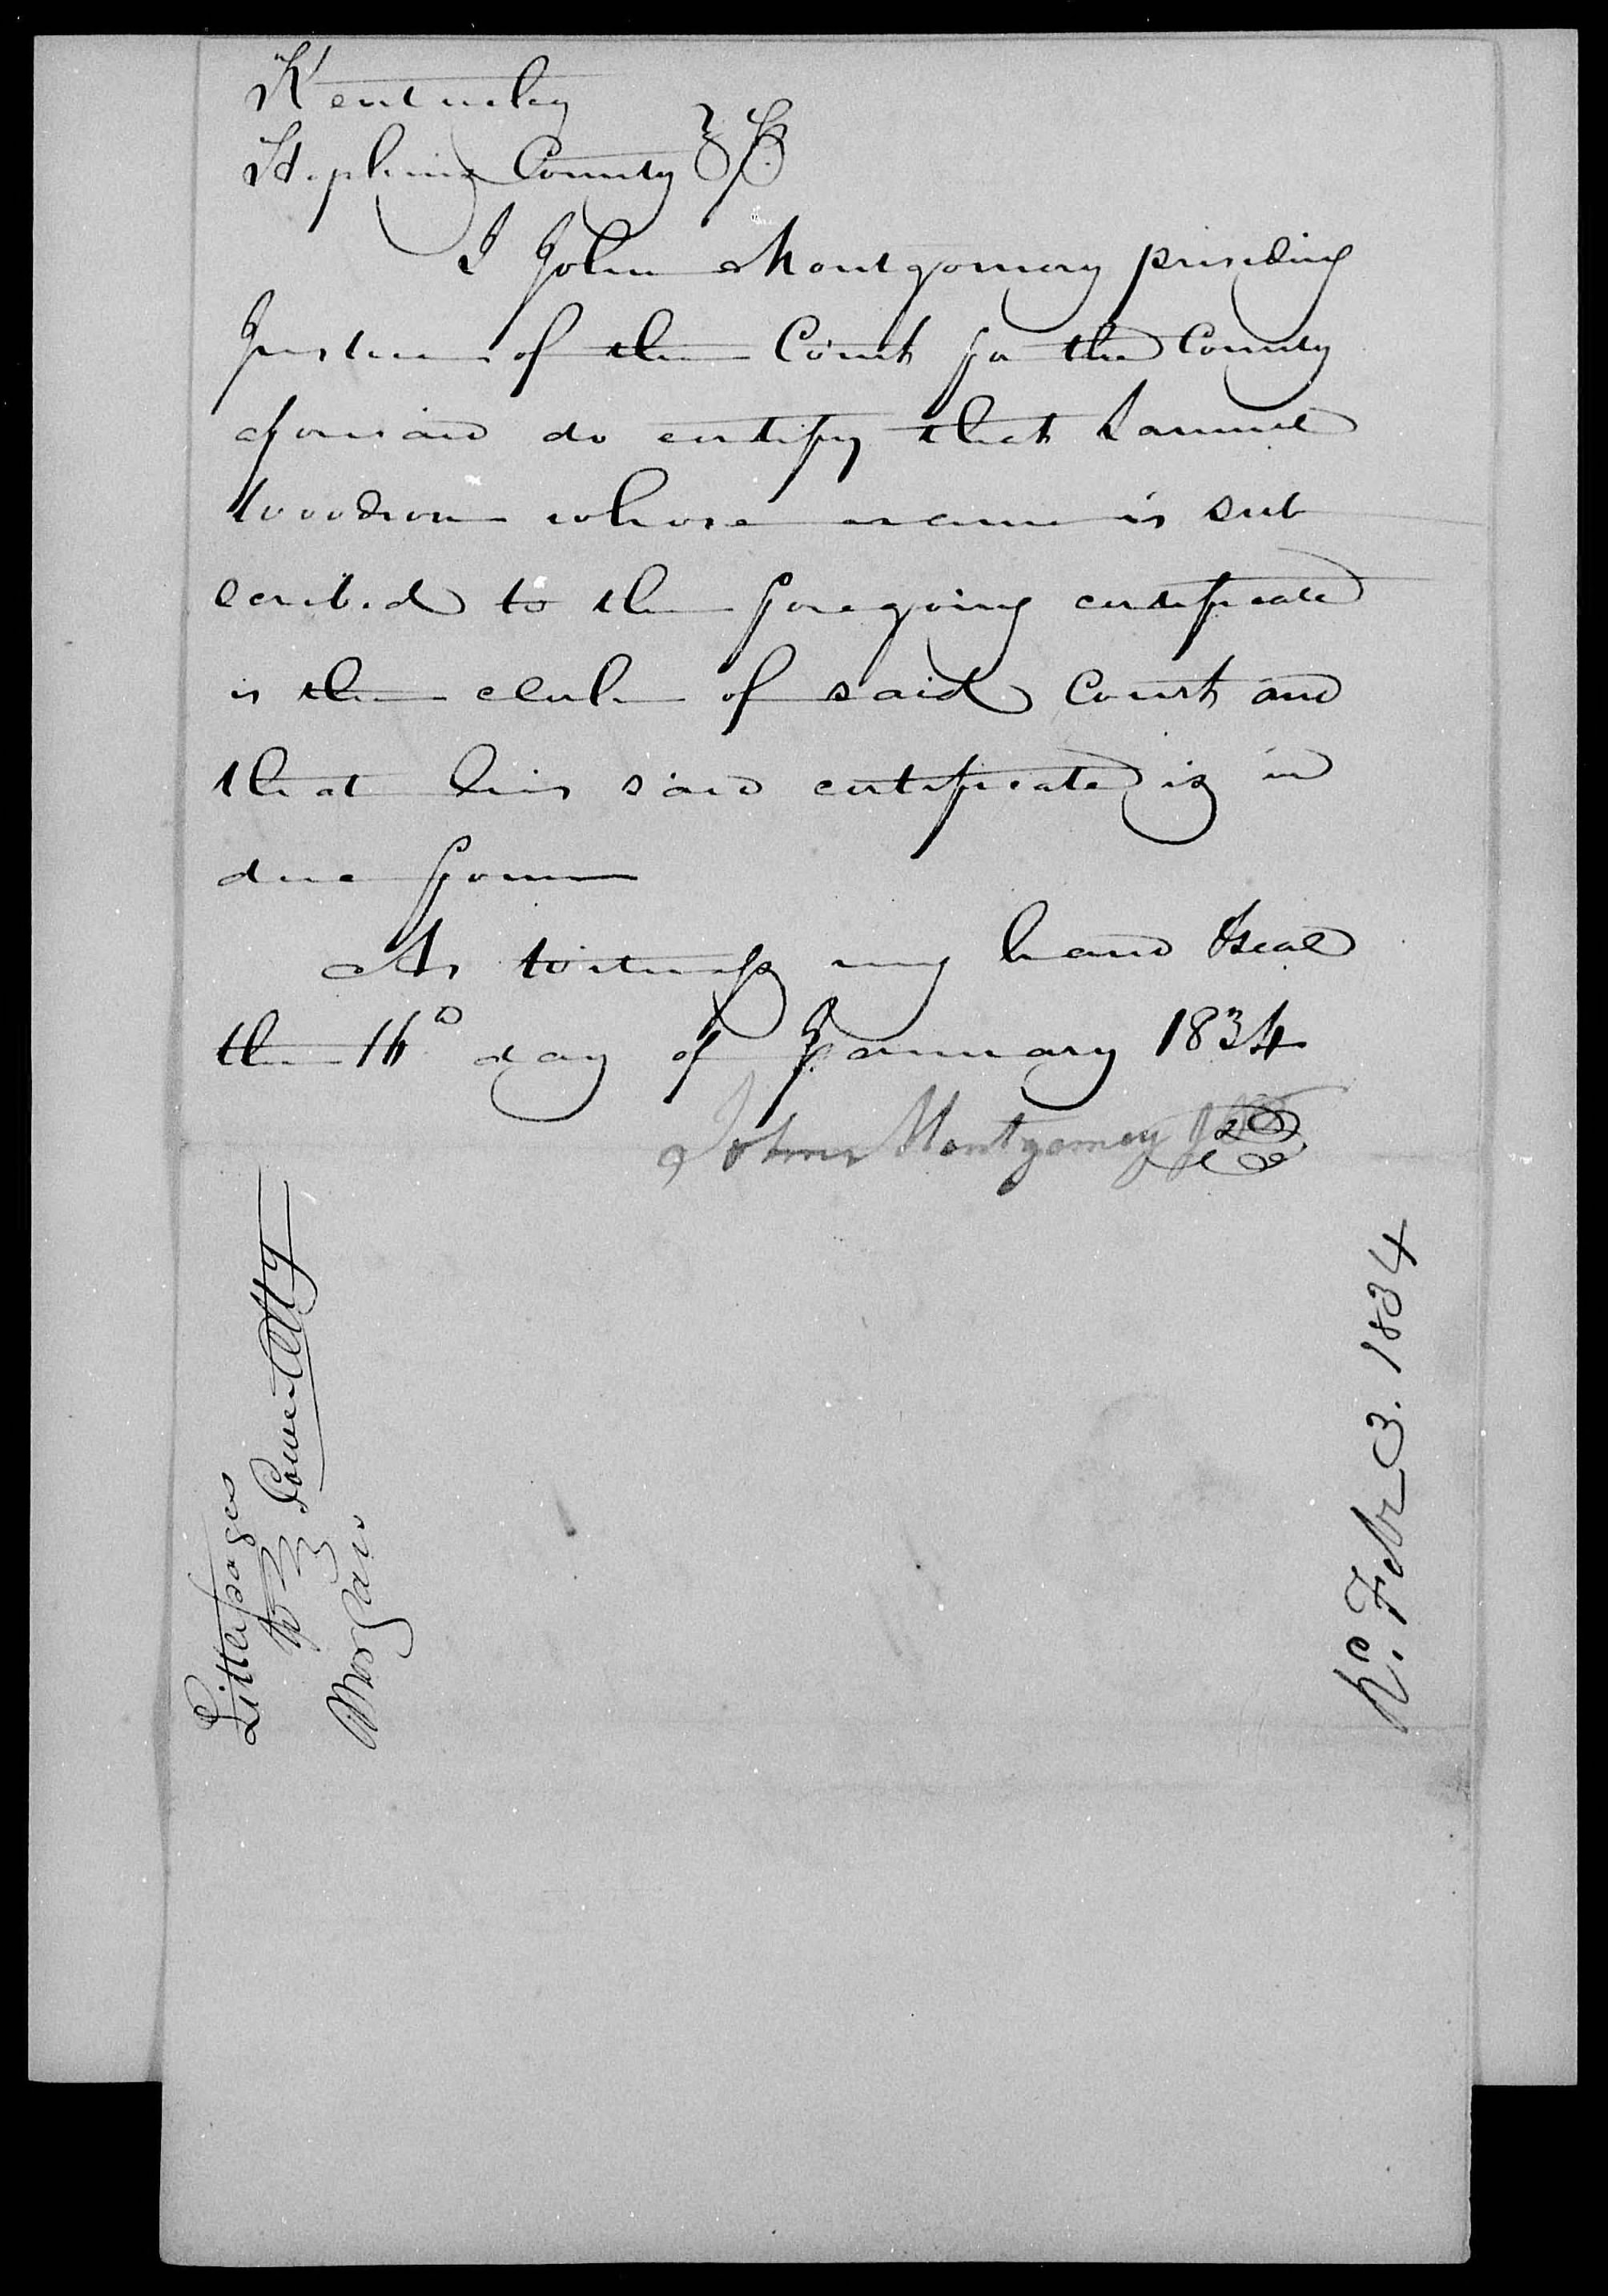 Kentucky
Hopkins County Sct.
I John Montgomery presiding
Justice of the Court for the County
aforesaid do certify that Samuel
Woodson whose name is sub
scribed to the foregoing certificate
is the clerk of said Court and
that his said certificate is in
due form
As witness my hand & seal
the 16th day of January 1834
John Montgomery
Littlepages
Power Atty
Morgan
Feby 3. 1834